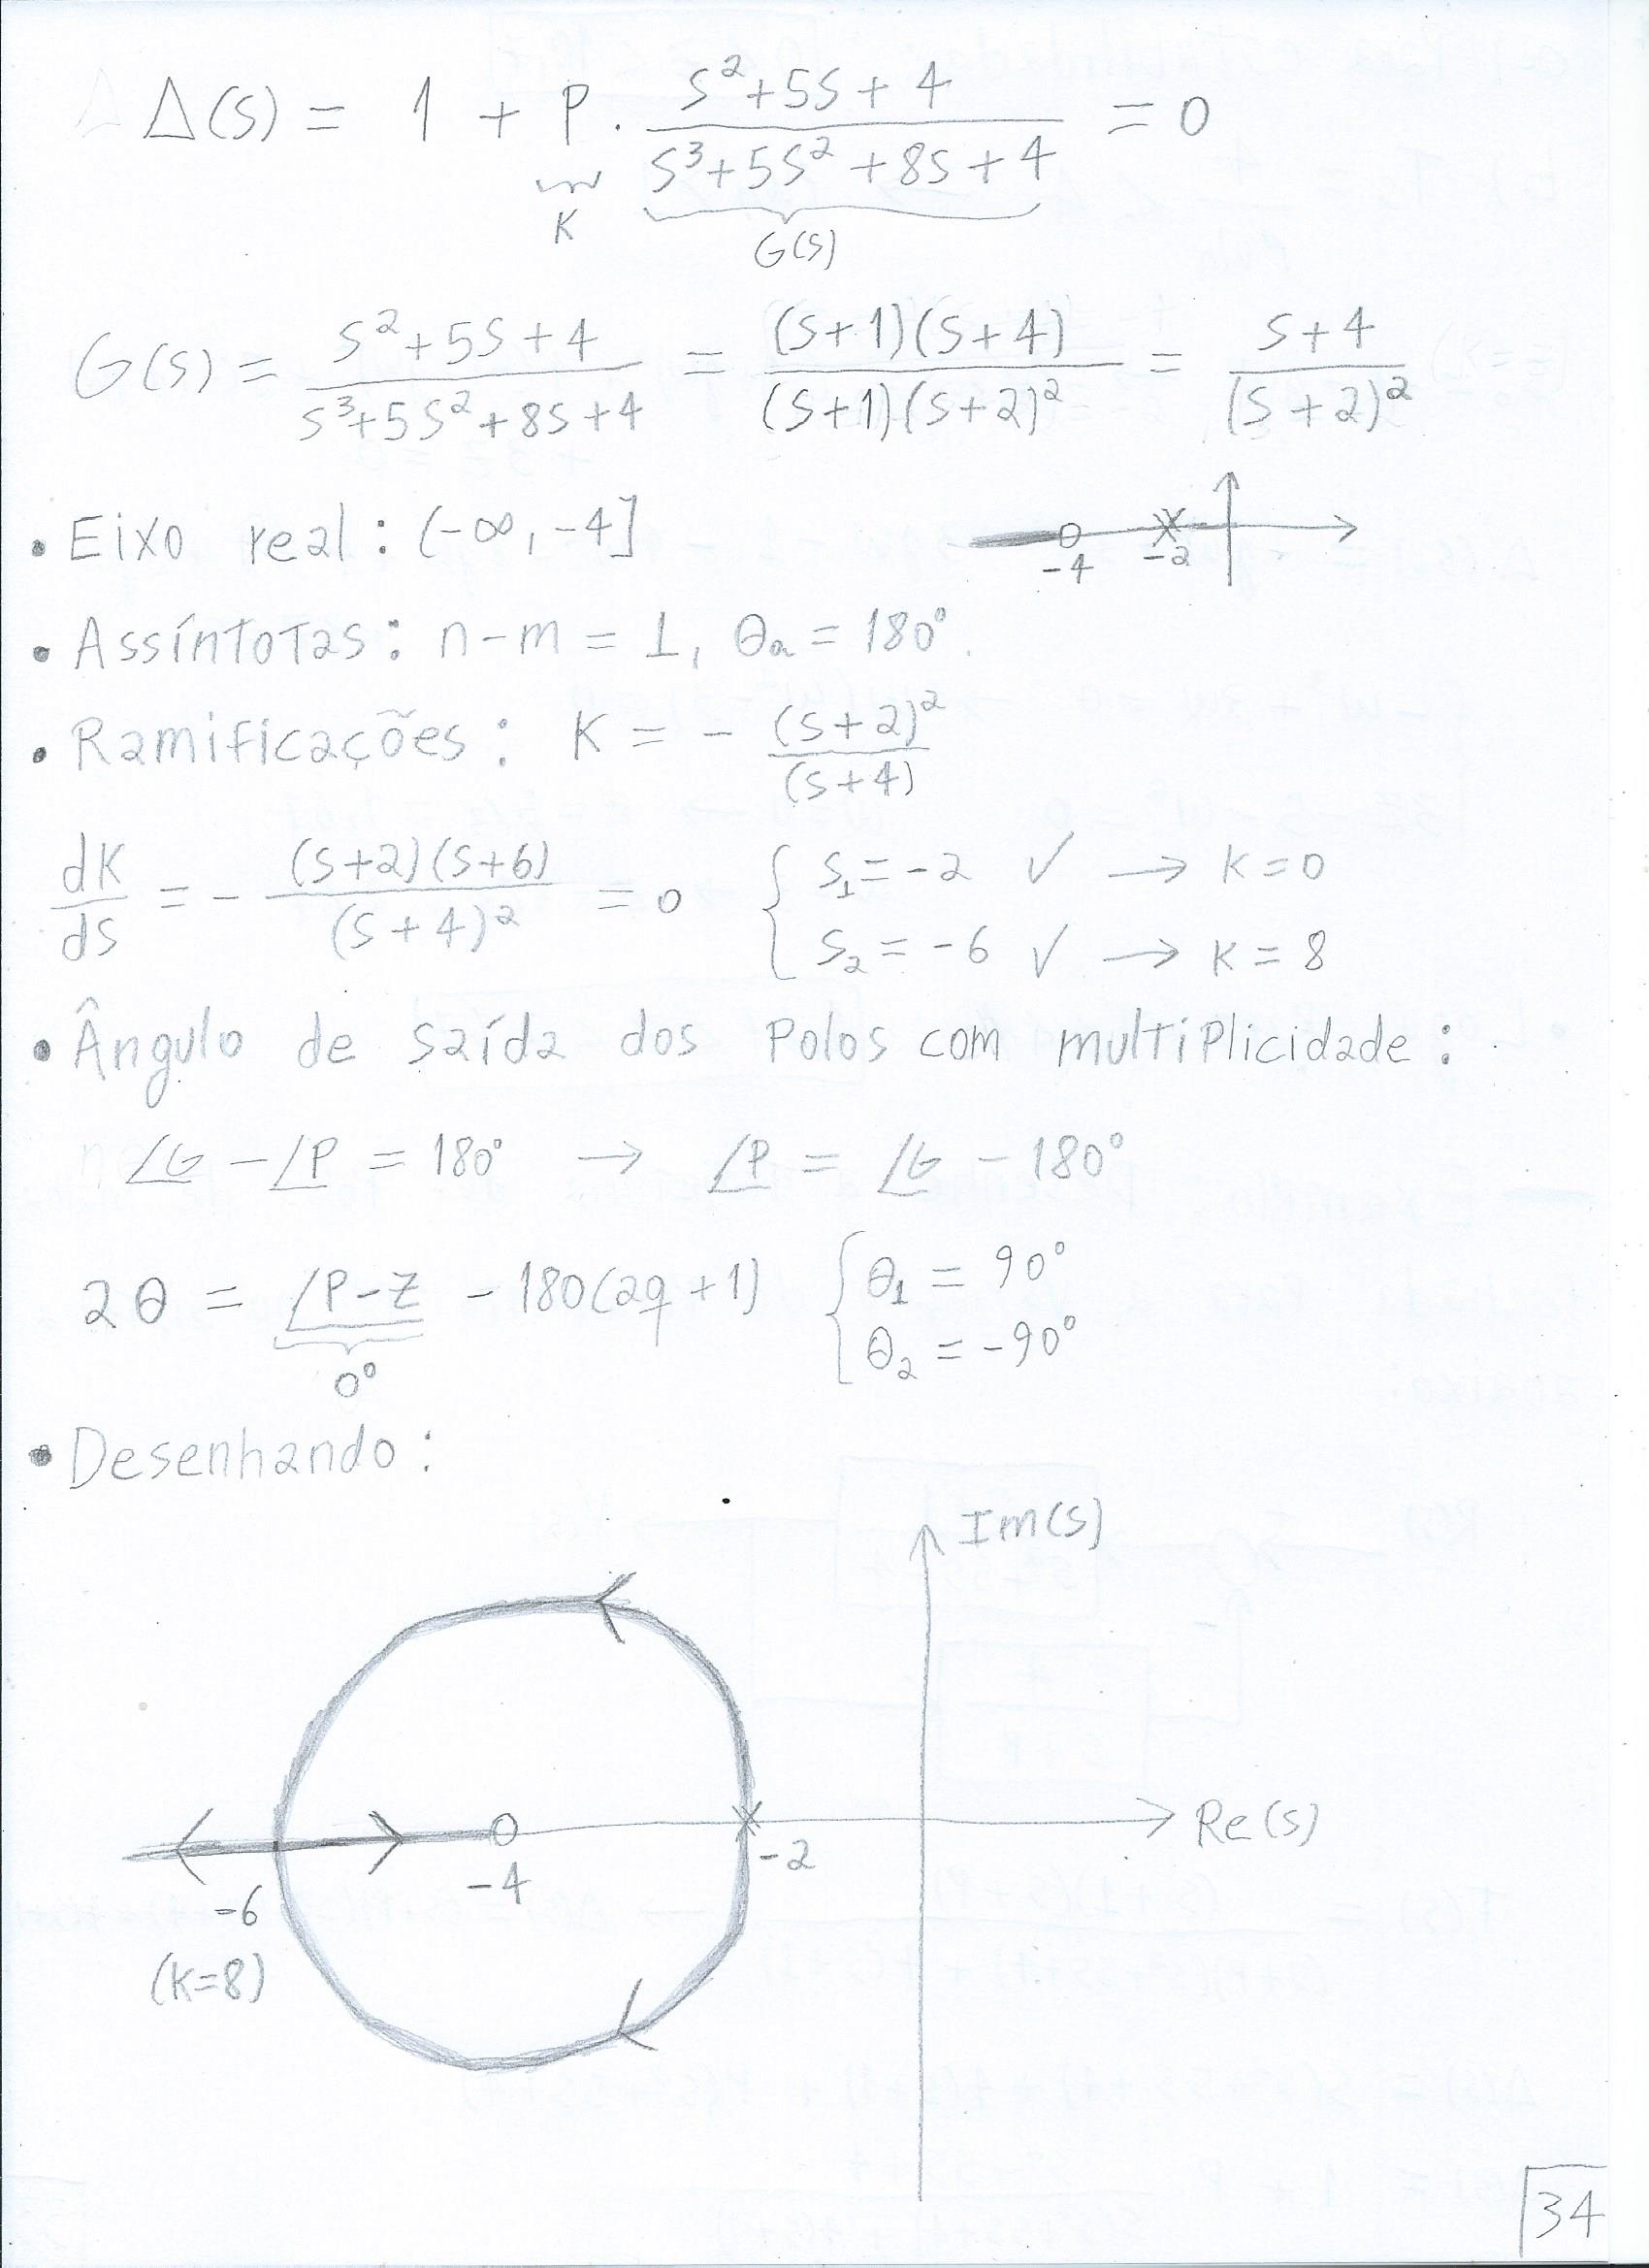 Δ(s) = 1 + P . (s²+5s+4)/(s³+5s²+8s+4) = 0
K
G(s)
G(s) = (s²+5s+4)/(s³+5s²+8s+4) = (s+1)(s+4)/(s+1)(s+2)² = (s+4)/(s+2)²
• Eixo real: (-∞, -4]
-4 -2
• Assíntotas: n-m = 1, θa = 180°.
• Ramificações: K = - (s+2)²/(s+4)
dK/ds = - (s+2)(s+6)/(s+4)² = 0 { s₁ = -2 ✓ → K=0
s₂ = -6 ✓ → K = 8
• Ângulo de saída dos polos com multiplicidade:
∠G - ∠P = 180° → ∠P = ∠G - 180°
2θ = ∠P-Z - 180(2q+1) { θ₁ = 90°
θ₂ = -90°
0°
• Desenhando:
Im(s)
Re(s)
-2
-4
-6
(K=8)
34